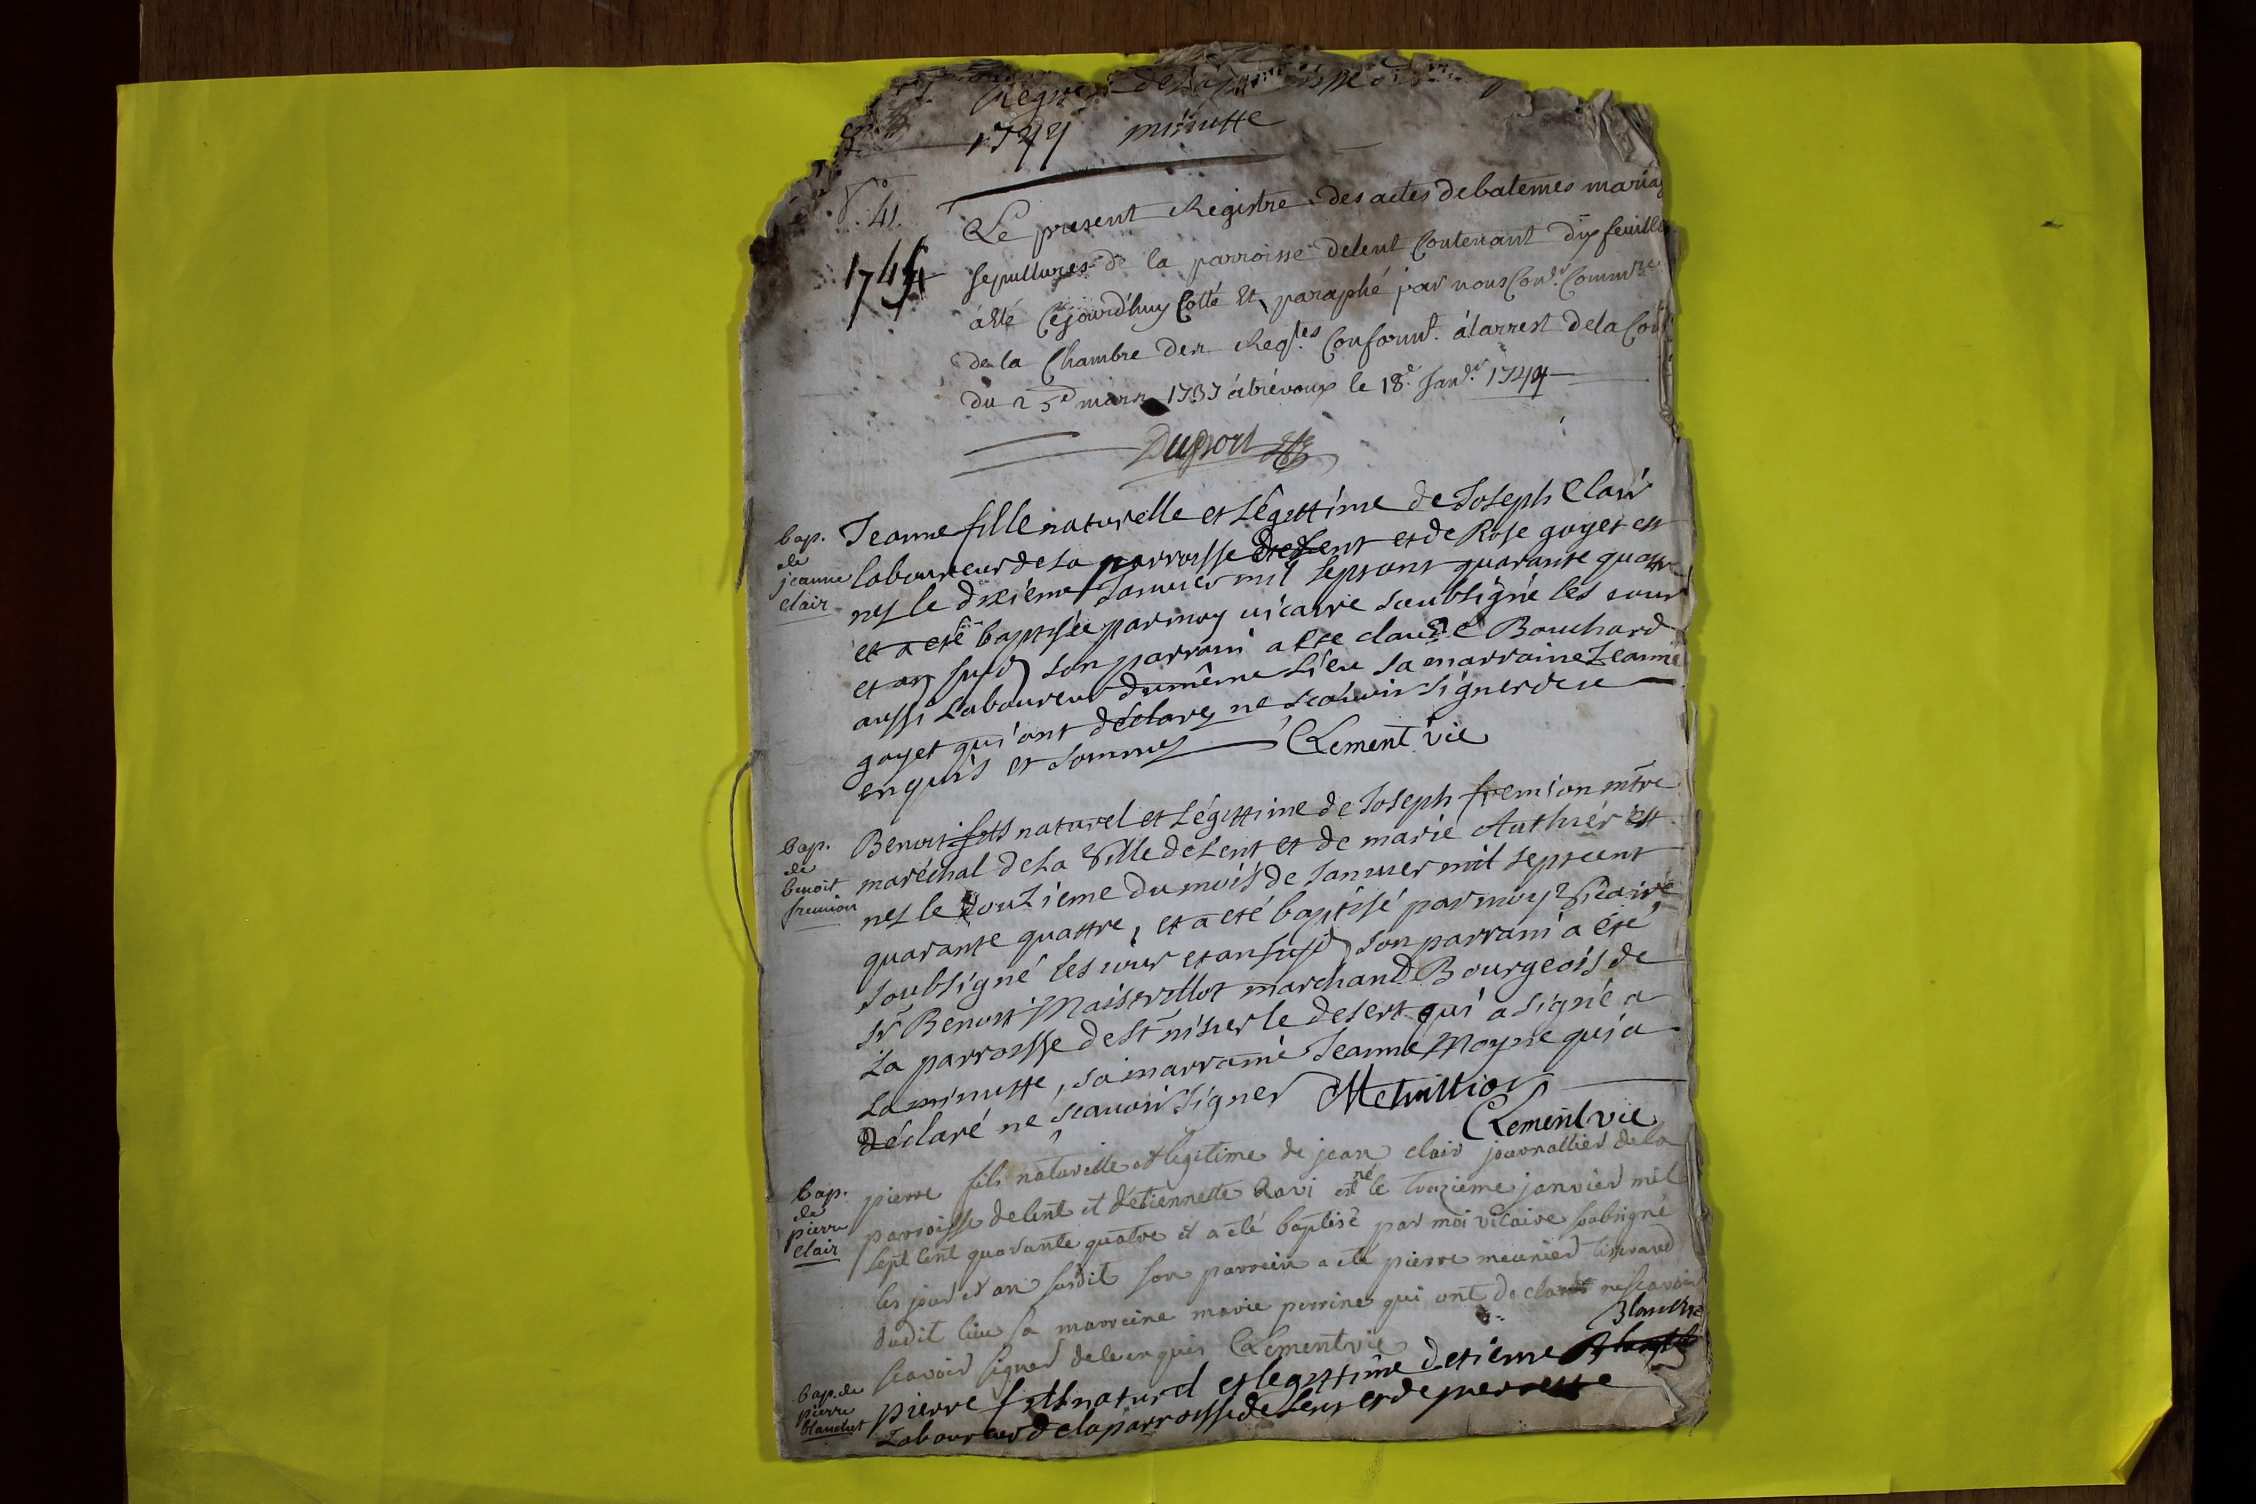 1744 minutte
N.º 41.
1744
Le present Registre des actes de batemes mariag
sepultures de la parroisse delent Contenant dix feuille
a Eté Cejourd'huy Cotté Et paraphé par nous Con.er Comm.re
de la Chambre des Req.tes Conform.t à larrest de la Cour
du 25e mars 1737 à trévoux le 18.e Janv.er 1744
Duport
bap.
de
jeanne
clair
Jeanne fille naturelle et Légittime de Joseph Clair
laboureur de la parroisse de Lent et de Rose goyet est
neé le dixième Janvier mil septcent quarante quattre
et a eté baptisée par moy vicaire soubsigné les jour
et an susd son parrain a ete claude Bouchard
aussi Laboureur du même Lieu sa marraine Jeanne
goyet qui ont déclarez ne sçavoir signer de ce
enquis et sommez Clement vic
bap.
de
benoit
fremion
Benoit fils naturel et Légittime de Joseph fremion mtre
maréchal de La Ville de Lent et de marie Authier est
nez le douzième du mois de Janvier mil septcent
quarante quattre, et a eté baptisé par moy Vicaire
soubsigné les jour et an susd son parrain a été
sr Benoit marchand Bourgeois de
La parroisse de st nisier le desert qui a signé a
La minutte, sa marraine Jeanne Moyne qui a
déclaré ne sçavoir signer
Clement vic
bap.
de
pierre
clair
pierre fils naturelle et legitime de jean clair journallier de la
parroisse delent et d'etiennette Ravi est né le treizieme janvier mil
sept cent quarante quatre et a eté baptisé par moi vicaire soubsigné
les jour et an susdit son parrein a ete pierre meunier tisserand
dudit lieu sa marreine marie perrine qui ont declaré ne scavoir
scavoir signer de ce enquis Clement vic
bap. de
pierre
blanchet
Blanchet
pierre fils naturel et legittime detiene
Laboureur de la parroisse de Lent et de pierrette